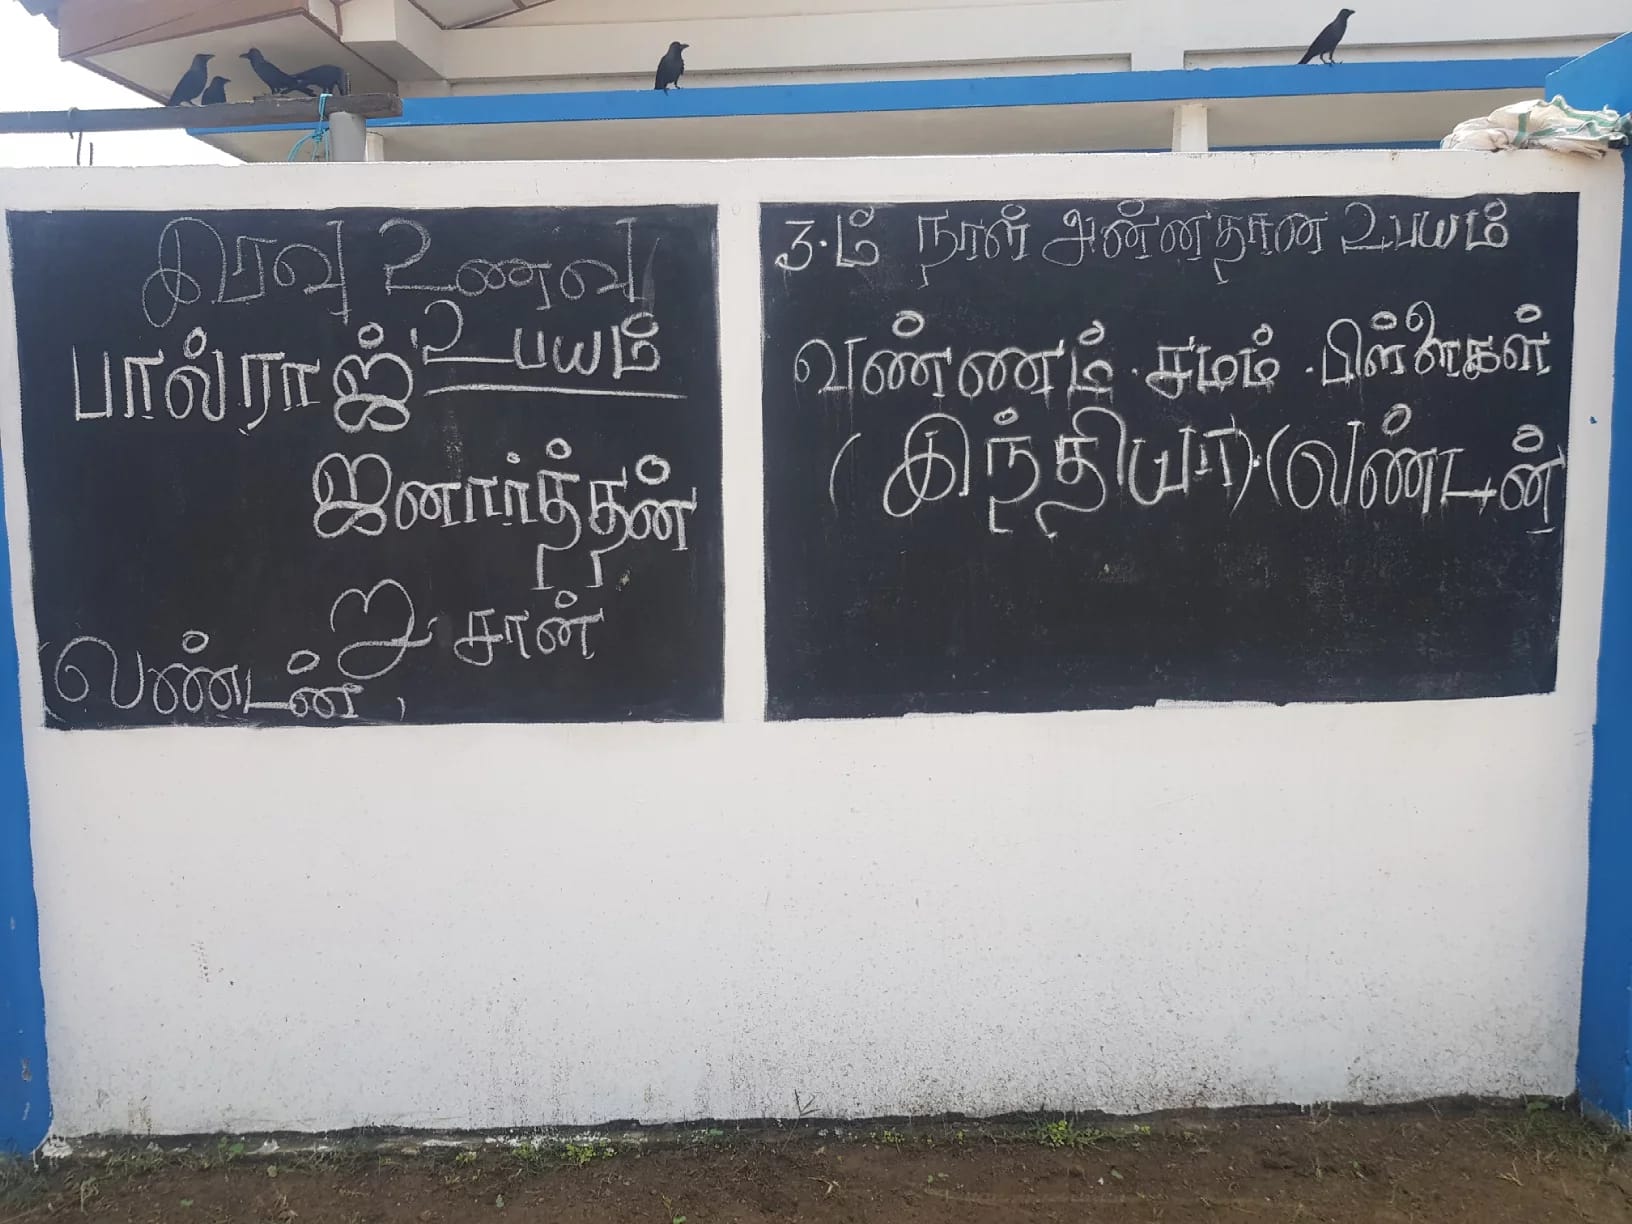 இரவு உணவு
பால்ராஜ் உபயம்
ஜனார்த்தன்
றுசான்
(லண்டன்)
3.ம் நாள் அன்னதான உபயம்
வண்ணம். சமம். பிள்ளைகள்
(இந்தியா).(லண்டன்